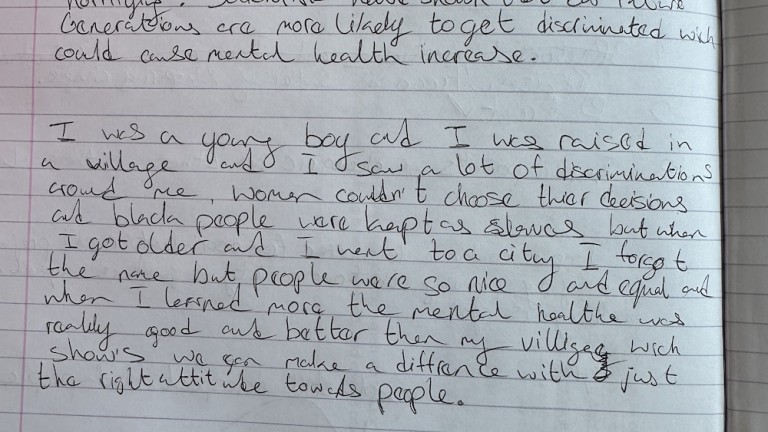 Generations are more likely to get discriminated wich
could cause mental health increase.
I was a young boy and I was raised in
a village and I saw a lot of discriminations
around me, women couldn't choose thier deeisions
and black people were kept as slaves but when
I got older and I went to a city I forgot
the name but people were so nice and equal and
when I lerned more the mental healthe was
really good and better then my villige wich
show's we can make a diffrence with just
the right attitube towads people.